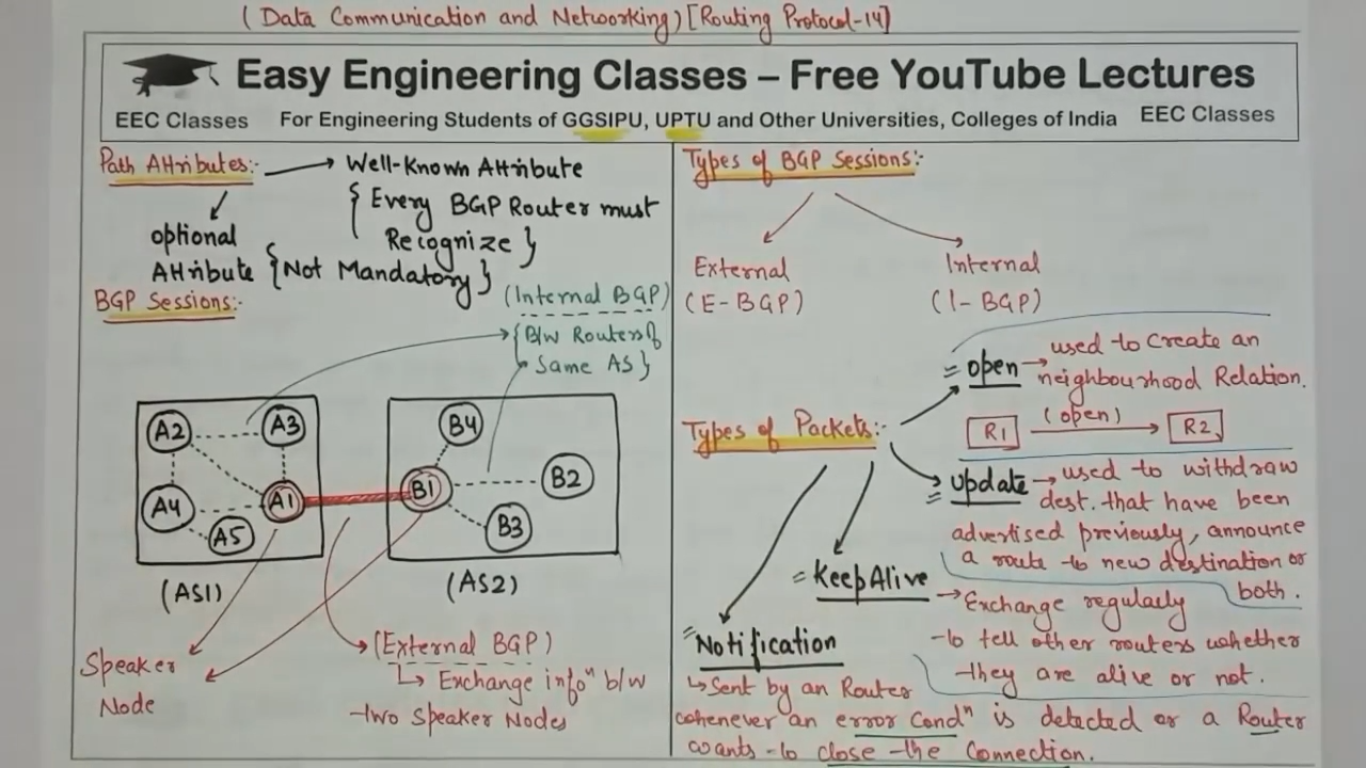 (Data Communication and Networking) [Routing Protocol-14]
Easy Engineering Classes – Free YouTube Lectures
EEC Classes For Engineering Students of GGSIPU, UPTU and Other Universities, Colleges of India EEC Classes
Path Attributes:- → Well-Known Attribute
{ Every BGP Router must
Recognize }
optional
Attribute { Not Mandatory }
BGP Sessions:-
(Internal BGP)
{ B/w Routers of
Same AS }
A2 A3
A4 A1
A5
(AS1)
B4
B1 B2
B3
(AS2)
Speaker
Node
(External BGP)
↳ Exchange infoⁿ b/w
two Speaker Nodes
Types of BGP Sessions:-
External
(E-BGP)
Internal
(I-BGP)
Types of Packets:-
= open → used to Create an
neighbourhood Relation.
R1 (open) R2
= Update → used to withdraw
dest. that have been
advertised previously, announce
a route to new destination or
both.
= KeepAlive
→ Exchange regularly
to tell other routers whether
they are alive or not.
= Notification
↳ Sent by an Router
whenever an error Condⁿ is detected or a Router
wants to close the Connection.